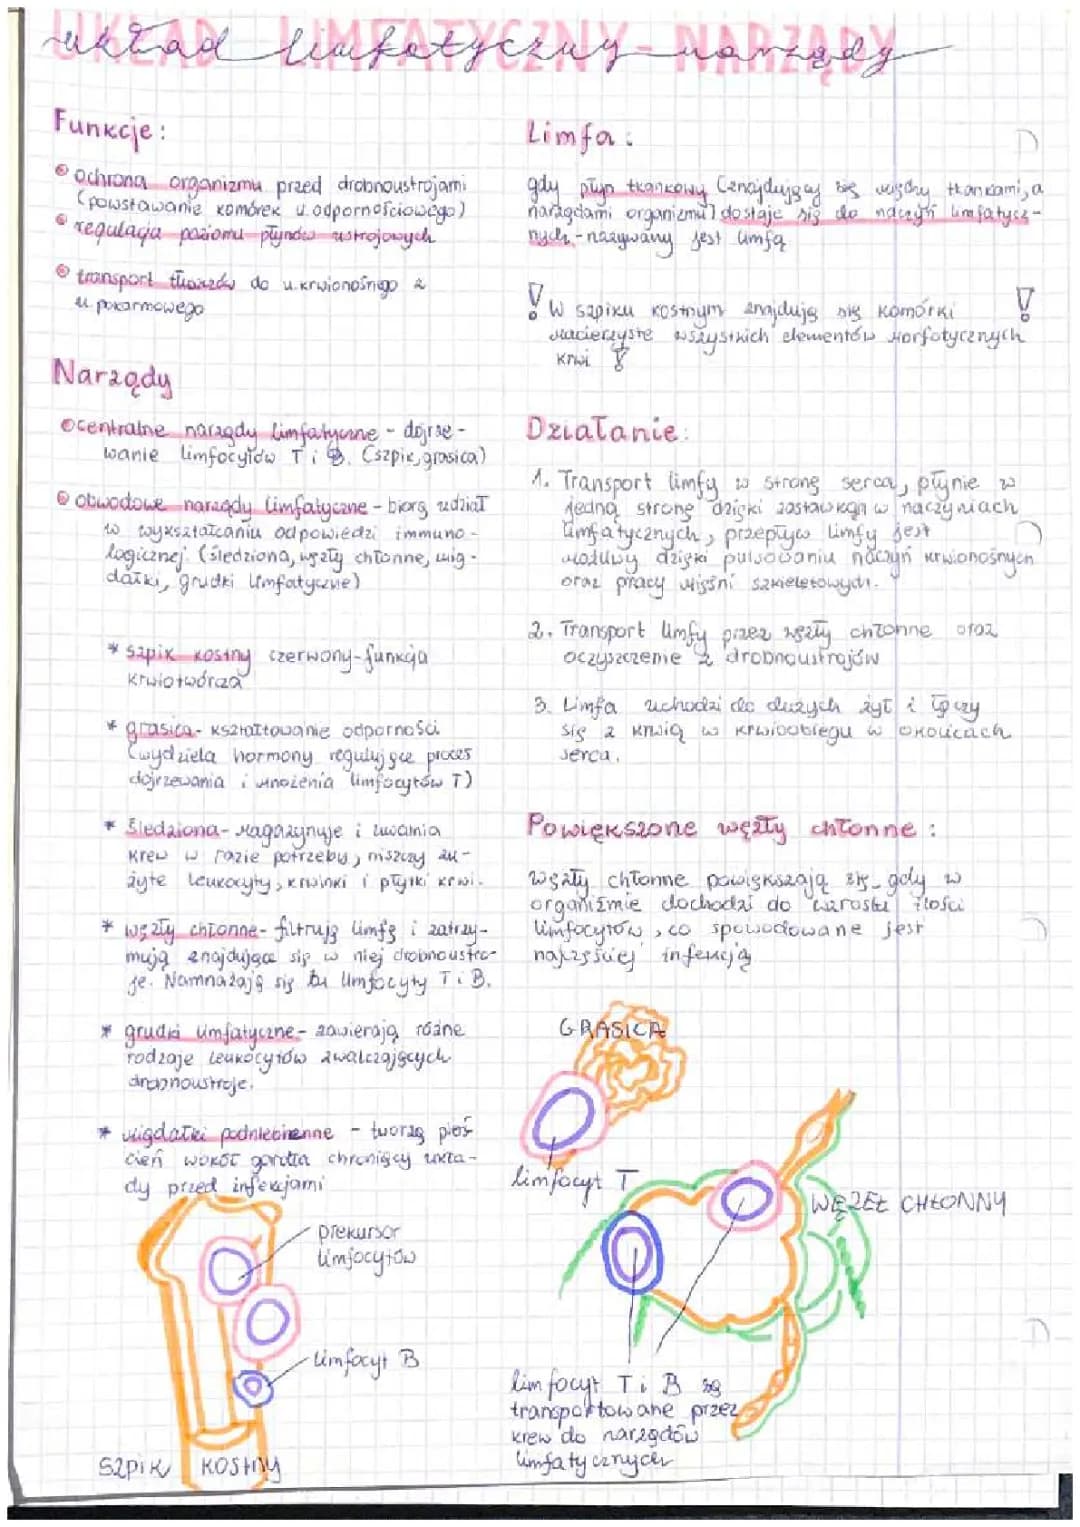 UKŁAD LIMFATYCZNY - NARZĄDY
układ limfatyczny - narządy
Funkcje:
ochrona organizmu przed drobnoustrojami
(powstawanie komórek u. odpornościowego)
regulacja poziomu płynów ustrojowych
transport tłuszczów do u. krwionośnego z
u. pokarmowego
Narządy
centralne narządy limfatyczne - dojrze-
wanie limfocytów T i B. (szpik, grasica)
obwodowe narządy limfatyczne - biorą udział
w wykształcaniu odpowiedzi immuno-
logicznej. (śledziona, węzły chłonne, mig-
dałki, grudki limfatyczne)
* szpik kostny czerwony - funkcja
krwiotwórcza
* grasica - kształtowanie odporności
(wydziela hormony regulujące proces
dojrzewania i mnożenia limfocytów T)
* śledziona - magazynuje i uwalnia
krew w razie potrzeby, niszczy zu-
żyte leukocyty, krwinki i płytki krwi.
* węzły chłonne - filtrują limfę i zatrzy-
mują znajdujące się w niej drobnoustro-
je. Namnażają się tu limfocyty T i B.
* grudki limfatyczne - zawierają różne
rodzaje leukocytów zwalczających
drobnoustroje.
* migdałki podniebienne - tworzą pierś-
cień wokół gardła chroniący ukła-
dy przed infekcjami
prekursor
limfocytów
limfocyt B
SZPIK KOSTNY
Limfa:
gdy płyn tkankowy (znajdujący się między tkankami, a
narządami organizmu) dostaje się do naczyń limfatycz-
nych - nazywany jest limfą
! W szpiku kostnym znajdują się komórki !
macierzyste wszystkich elementów morfotycznych
krwi !
Działanie:
1. Transport limfy w stronę serca, płynie w
jedną stronę dzięki zastawkom w naczyniach
limfatycznych, przepływ limfy jest
możliwy dzięki pulsowaniu naczyń krwionośnych
oraz pracy mięśni szkieletowych.
2. Transport limfy przez węzły chłonne oraz
oczyszczenie z drobnoustrojów
3. Limfa uchodzi do dużych żył i łączy
się z krwią w krwioobiegu w okolicach
serca.
Powiększone węzły chłonne:
węzły chłonne powiększają się gdy w
organiźmie dochodzi do wzrostu ilości
limfocytów, co spowodowane jest
najczęściej infekcją
GRASICA
limfocyt T
WĘZEŁ CHŁONNY
limfocyt T i B są
transportowane przez
krew do narządów
limfatycznych